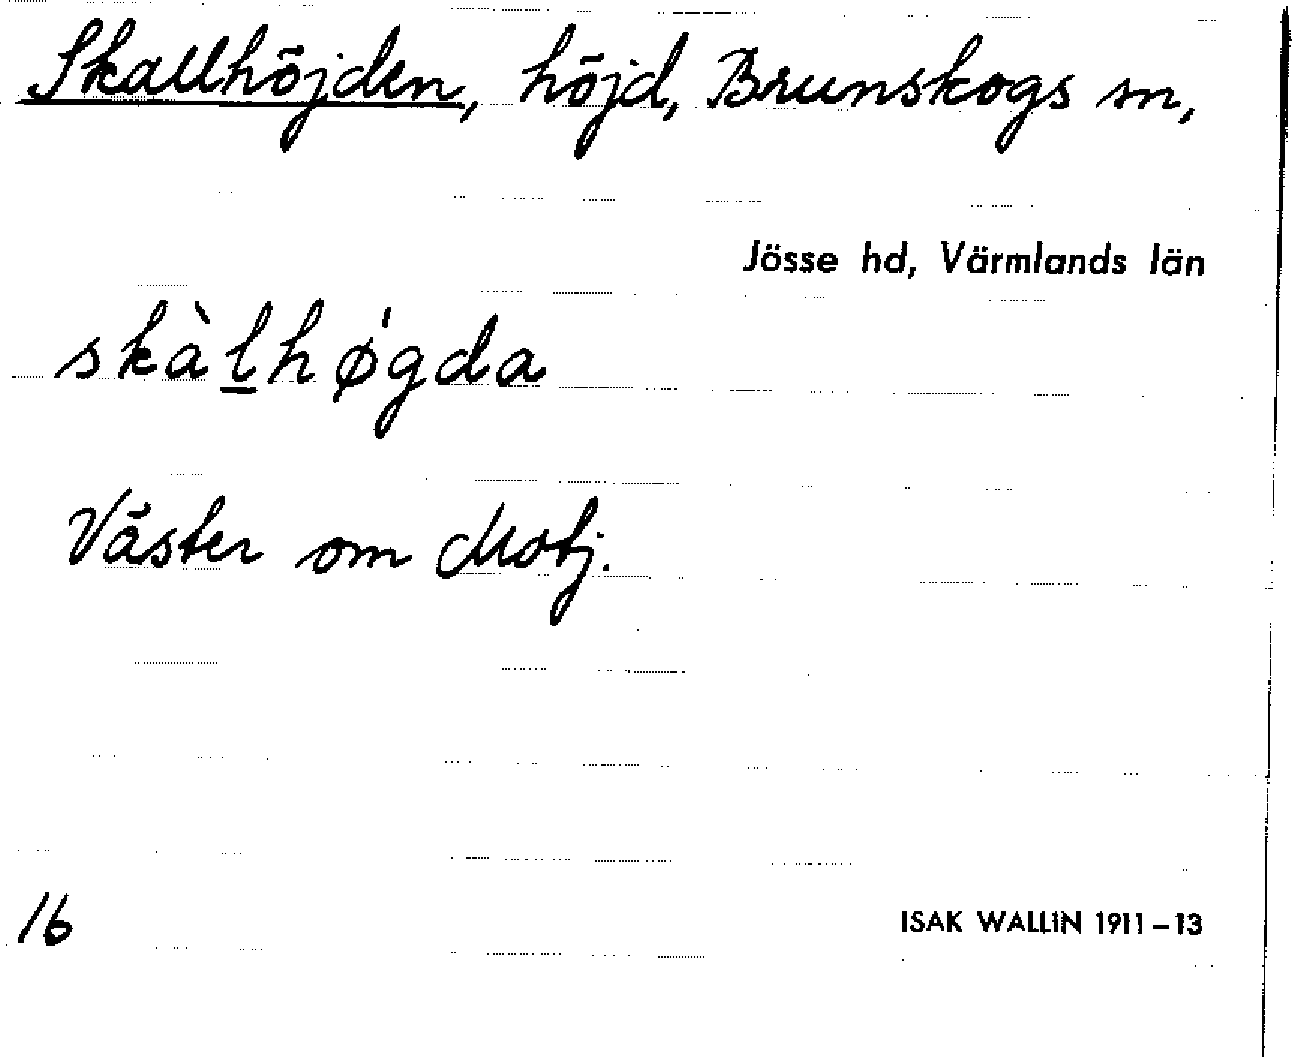 Skallhöjden, höjd, Brunskogs sn,
Jösse hd, Värmlands län
skàl̲hø̀gda
Väster om Motj.
16
ISAK WALLIN 1911–13